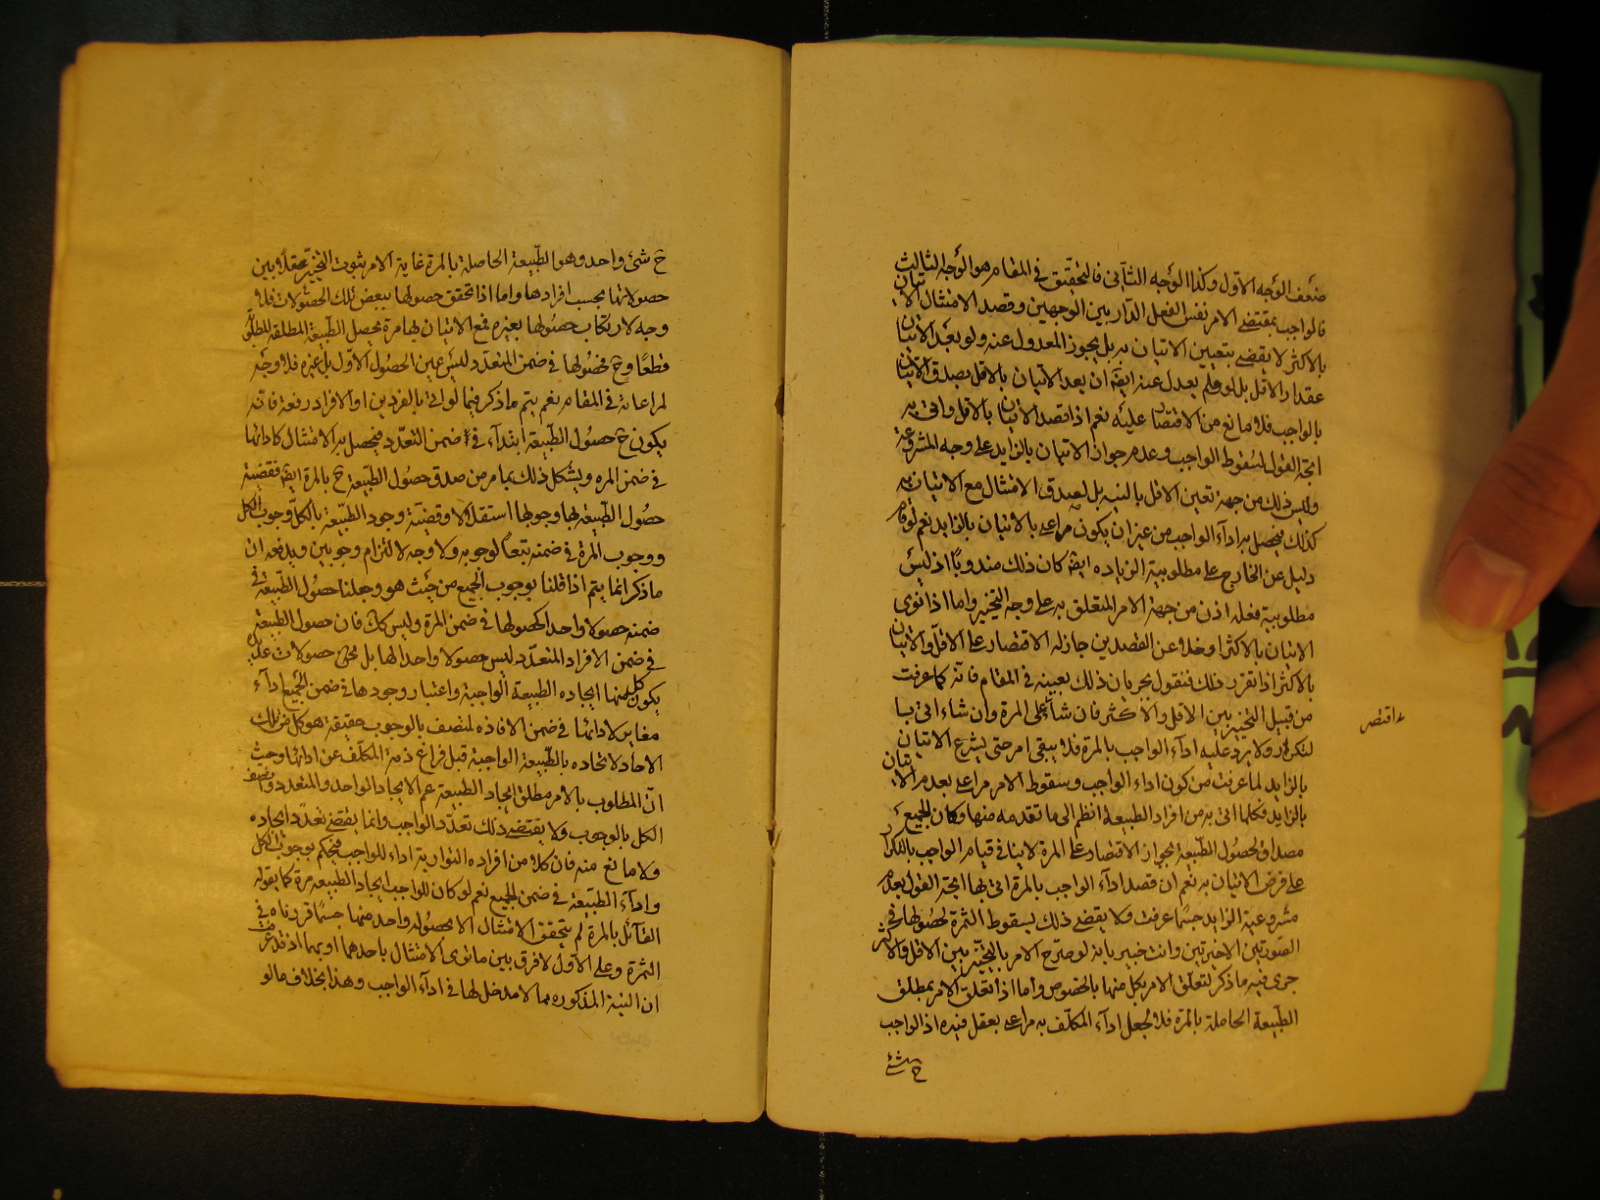 ضعف الوجه الاول وكذا الوجه الثاني فالتحقيق في المقام هو الوجه الثالث
فالواجب بمقتضى الامر نفس الفعل الدائر بين الوجهين وقصد الامتثال الاتيان
بالاكثر لا يقضي بتعيين الاتيان به بل يجوز المعدول عنه ولو بعد الاتيان
بمقدار الاقل بل لو فلم يعدل عنه ايضه ان بعد الاتيان بالاقل يصدق الاتيان
بالواجب فلا مانع من الاقتصار عليه نعم اذا قصد الاتيان بالاقل واتى به
اتجه القول لسقوط الواجب وعدم جواز الاتيان بالزايد على وجه المشروعية
وليس ذلك من جهة تعين الاقل بالنيه بل لصدق الامتثال مع الاتيان به
كذلك فيحصل به اداء الواجب من غير ان يكون مراعى بالاتيان بالزايد نعم لو قام
دليل عن الخارج على مطلوبية الزياده ايضه كان ذلك مندوبًا اذ ليس
مطلوبية فعله اذن من جهة الامر المتعلق به على وجه التخيير واما اذا نوى
الاتيان بالاكثر او خلا عن القصدين جاز له الاقتصار على الاقل والاتيان
بالاكثر اذا تقرر ذلك فنقول بجريان ذلك بعينه في المقام فانه كما عرفت
من قبيل التخيير بين الاقل والاكثر فان شاء على المرة وان شاء اتى با
اقتصر
لتكرار ولا يرد عليه اداء الواجب بالمرة فلا يبقى امر حتى يشرع الاتيان
بالزايد لما عرفت من كون اداء الواجب وسقوط الامر مراعى بعدم الاتيان
بالزايد فكلما اتى به من افراد الطبيعة انظم الى ما تقدمه منها وكان الجميع
مصداق لحصول الطبيعة فجواز الاقتصار على المرة لا ينافي قيام الواجب بالتكرار
على فرض الاتيان به نعم ان قصد اداء الواجب بالمرة اتى بها اتجه القول بعدم
مشروعية الزايد حسبما عرفت ولا يقضي ذلك بسقوط الثمرة لحصولها في
الصورتين الاخيرتين وانت خبير بانه لو صرح الامر بالتخيير بين الاقل والاكثر
جرى فيه ما ذكر لتعلق الامر بكل منها بالخصوص واما اذا تعلق الامر بمطلق
الطبيعة الحاصلة بالمرة فلا يجعل اداء المكلف به مراعى بعقل فيده اذ الواجب
ح شئ
ح شئ واحد وهو الطبيعة الحاصلة بالمرة غاية الامر ثبوت التخيير عقلا بين
حصولاتها بحسب افرادها واما اذا تحقق حصولها ببعض تلك الحصولات فلا
وجه لارتكاب حصولها بغيره فمع الاتيان بها مرة يحصل الطبيعة المطلقه المطلوبة
قطعًا وح فحصولها في ضمن المتعدد ليس عين الحصول الاول بل غيره فلا وجه
لمراعاته في المقام نعم يتم ما ذكر فيما لو اتى بالفردين او الافراد دفعة فانه
يكون ح حصول الطبيعة ابتداء في ضمن التعدد فيحصل به الامتثال كادائها
في ضمن المره ويشكل ذلك بما مر من صدق حصول الطبيعه ح بالمرة ايضه فقضية
حصول الطبيعة لها وجوبها استقلالا وقضية وجود الطبيعة بالكل وجوب الكل
ووجوب المرة في ضمنه تبعًا لوجوبه ولا وجه لالتزام وجوبين ويدفعه ان
ما ذكر انما يتم اذا قلنا بوجوب الجميع من حيث هو وجعلنا حصول الطبيعة في
ضمنه حصولا واحد الحصولها في ضمن المرة وليس كك فان حصول الطبيعة
في ضمن الافراد المتعدد ليس حصولا واحدا لها بل هي حصولات عديدة
يكون كل منها ايجاده الطبيعة الواجبة واعتبار وجودها في ضمن الجميع اداء
مغاير لادائها في ضمن الافاده لمتصف بالوجوب حقيقة هو كل من تلك
الاحاد لاتحاده بالطبيعة الواجبة قبل فراغ ذمة المكلف عن ادائها وحيث
ان المطلوب بالامر مطلق ايجاد الطبيعة عم الايجاد الواحد والمتعدد ويتصف
الكل بالوجوب ولا يقتضي ذلك تعدد الواجب وانما يقتضي تعدد ايجاده
ولا مانع منه فان كلا من افراده التوارية اداء للواجب فيحكم بوجوب الكل
واداء الطبيعة في ضمن الجميع نعم لو كان للواجب ايجاد الطبيعه مرة كما يقوله
القائل بالمرة لم يتحقق الامتثال الا بحصول واحد منها حسبما قررناه في
الثمرة وعلى الاول لا فرق بين ما نوى الامتثال باحدهما او بهما اذ قد عرفت
ان النية المذكوره مما لا مدخل لها في اداء الواجب وهذا بخلاف ما لو